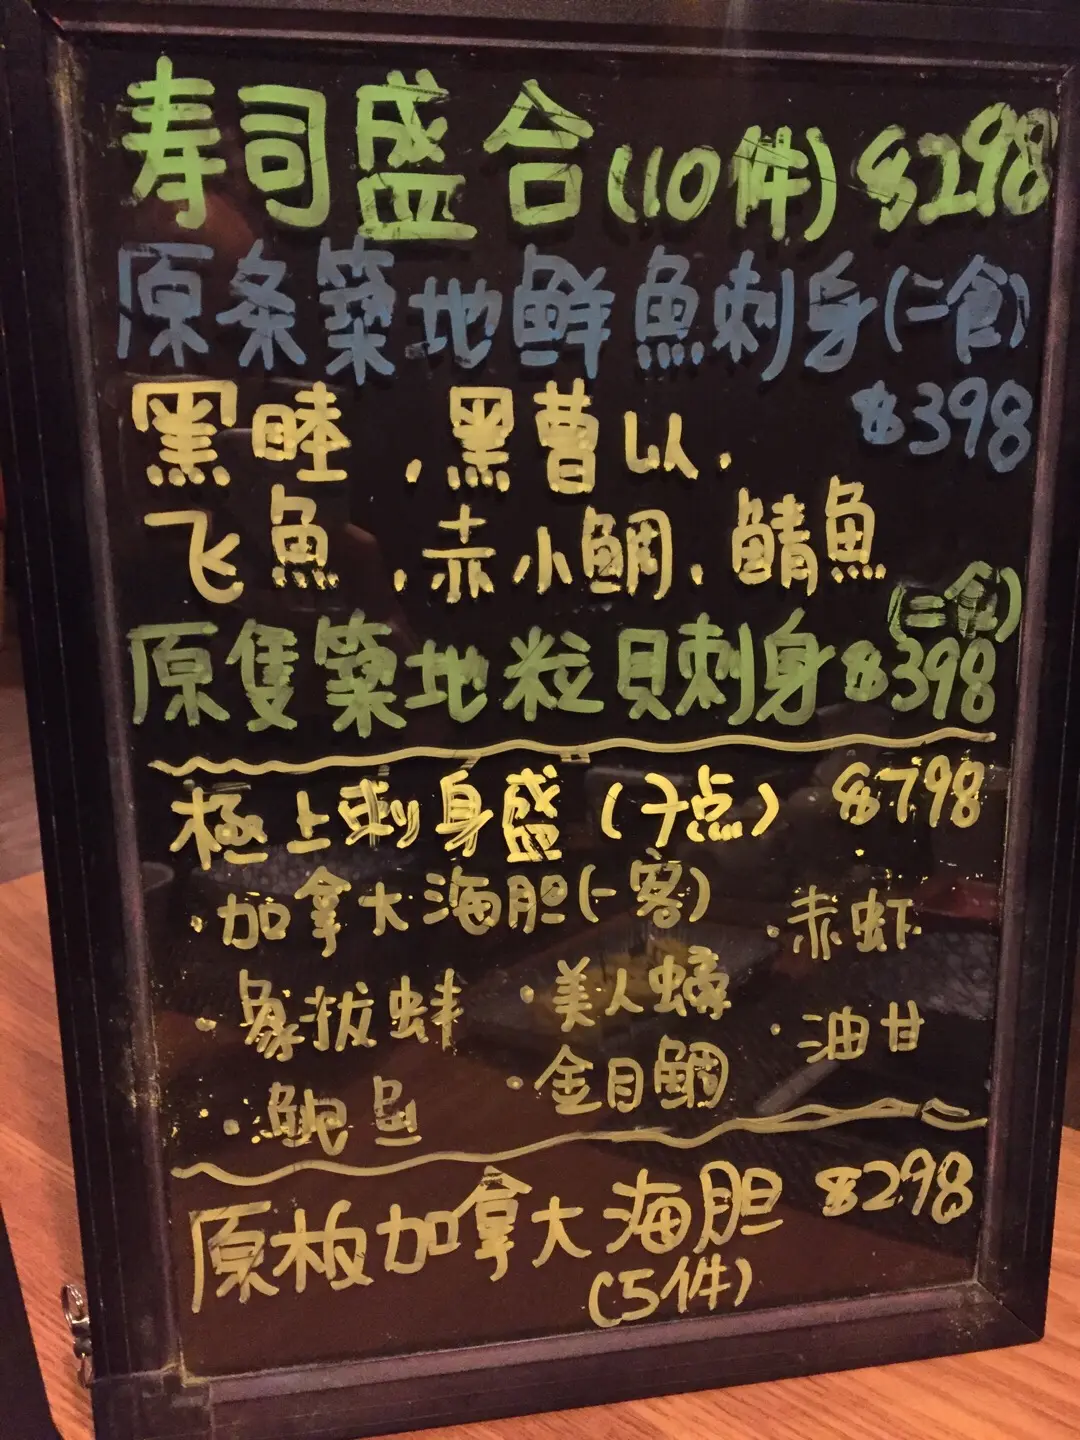 寿司盛合(10件) $298
原条築地鮮魚刺身(二食)
$398
黑睦，黑曹以，
飞魚，赤小鯛，鯖魚
(二食)
原隻築地粒貝刺身 $398
極上刺身盛(7点) $798
·加拿大海胆(一客) ·赤虾
·象拔蚌 ·美人蟮 ·油甘
·鮑鱼 ·金目鯛
原板加拿大海胆 $298
(5件)